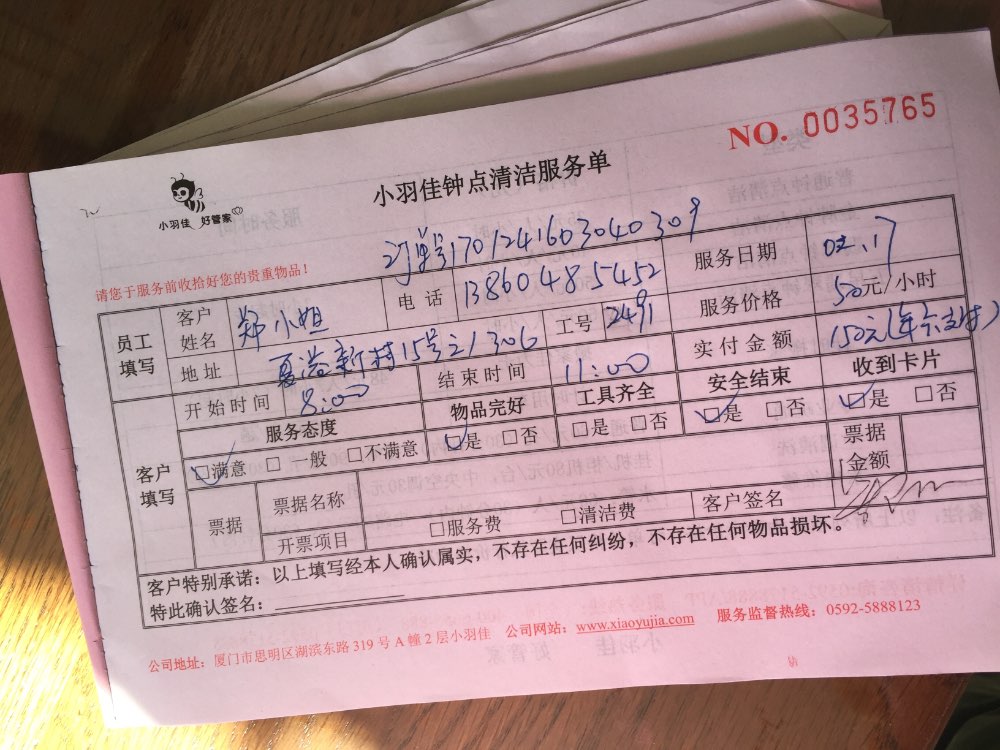 NO. 0035765
小羽佳 好管家
小羽佳钟点清洁服务单
请您于服务前收拾好您的贵重物品!
订单号1701241603040309
员工填写 客户姓名 郑小姐 电话 13860485452 服务日期 02.17
地址 夏溢新村15号之1306 工号 2491 服务价格 50元/小时
开始时间 8:00 结束时间 11:00 实付金额 150元(年卡支持)
客户填写 服务态度 物品完好 工具齐全 安全结束 收到卡片
□满意 □一般 □不满意 □是 □否 □是 □否 □是 □否 □是 □否
票据 票据名称 票据金额
开票项目 □服务费 □清洁费 客户签名
客户特别承诺：以上填写经本人确认属实，不存在任何纠纷，不存在任何物品损坏。
特此确认签名：
公司地址：厦门市思明区湖滨东路319号A幢2层小羽佳 公司网站：www.xiaoyujia.com 服务监督热线：0592-5888123